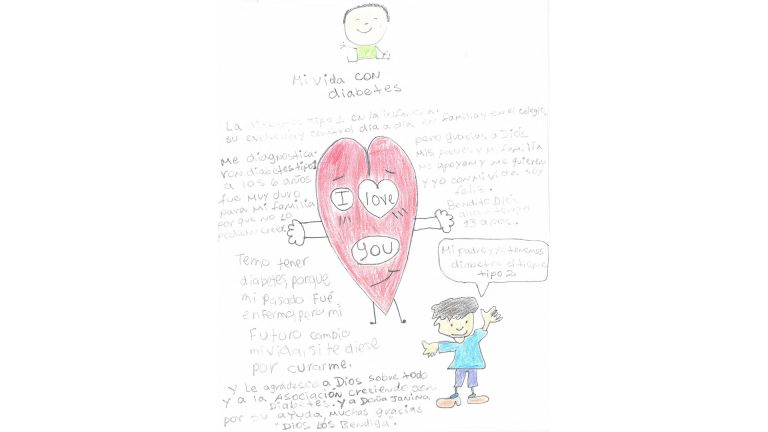 Mi vida con
diabetes
La tipo 1 en la infancia.
su evolución y control día a día en familia y en el colegio,
Me diagnostica-
ron diabetes tipo 1
a los 6 años
fue muy duro
para mi familia
porque no lo
podían creer
pero gracias a Dios
Mis padres y mi familia
me apoyan y me quieren
y yo con mi vida soy
feliz.
Bendito Dios
tengo
13 años.
I love
you
Mi padre y yo tenemos
diabetes
tipo 2
Temo tener
diabetes, porque
mi pasado fué
enfermo, para mi
Futuro cambio
mi vida, si te diese
por curarme.
y Le agradesco a Dios sobre todo
y a la Asociación creciendo con
Diabetes. y a Doña Janina,
por su ayuda, muchas gracias
"Dios los Bendiga".